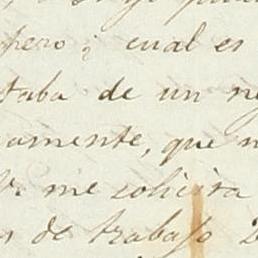 pero ¿ cual es
taba de un ne
amente, que n
V. me solicita
s de trabajo